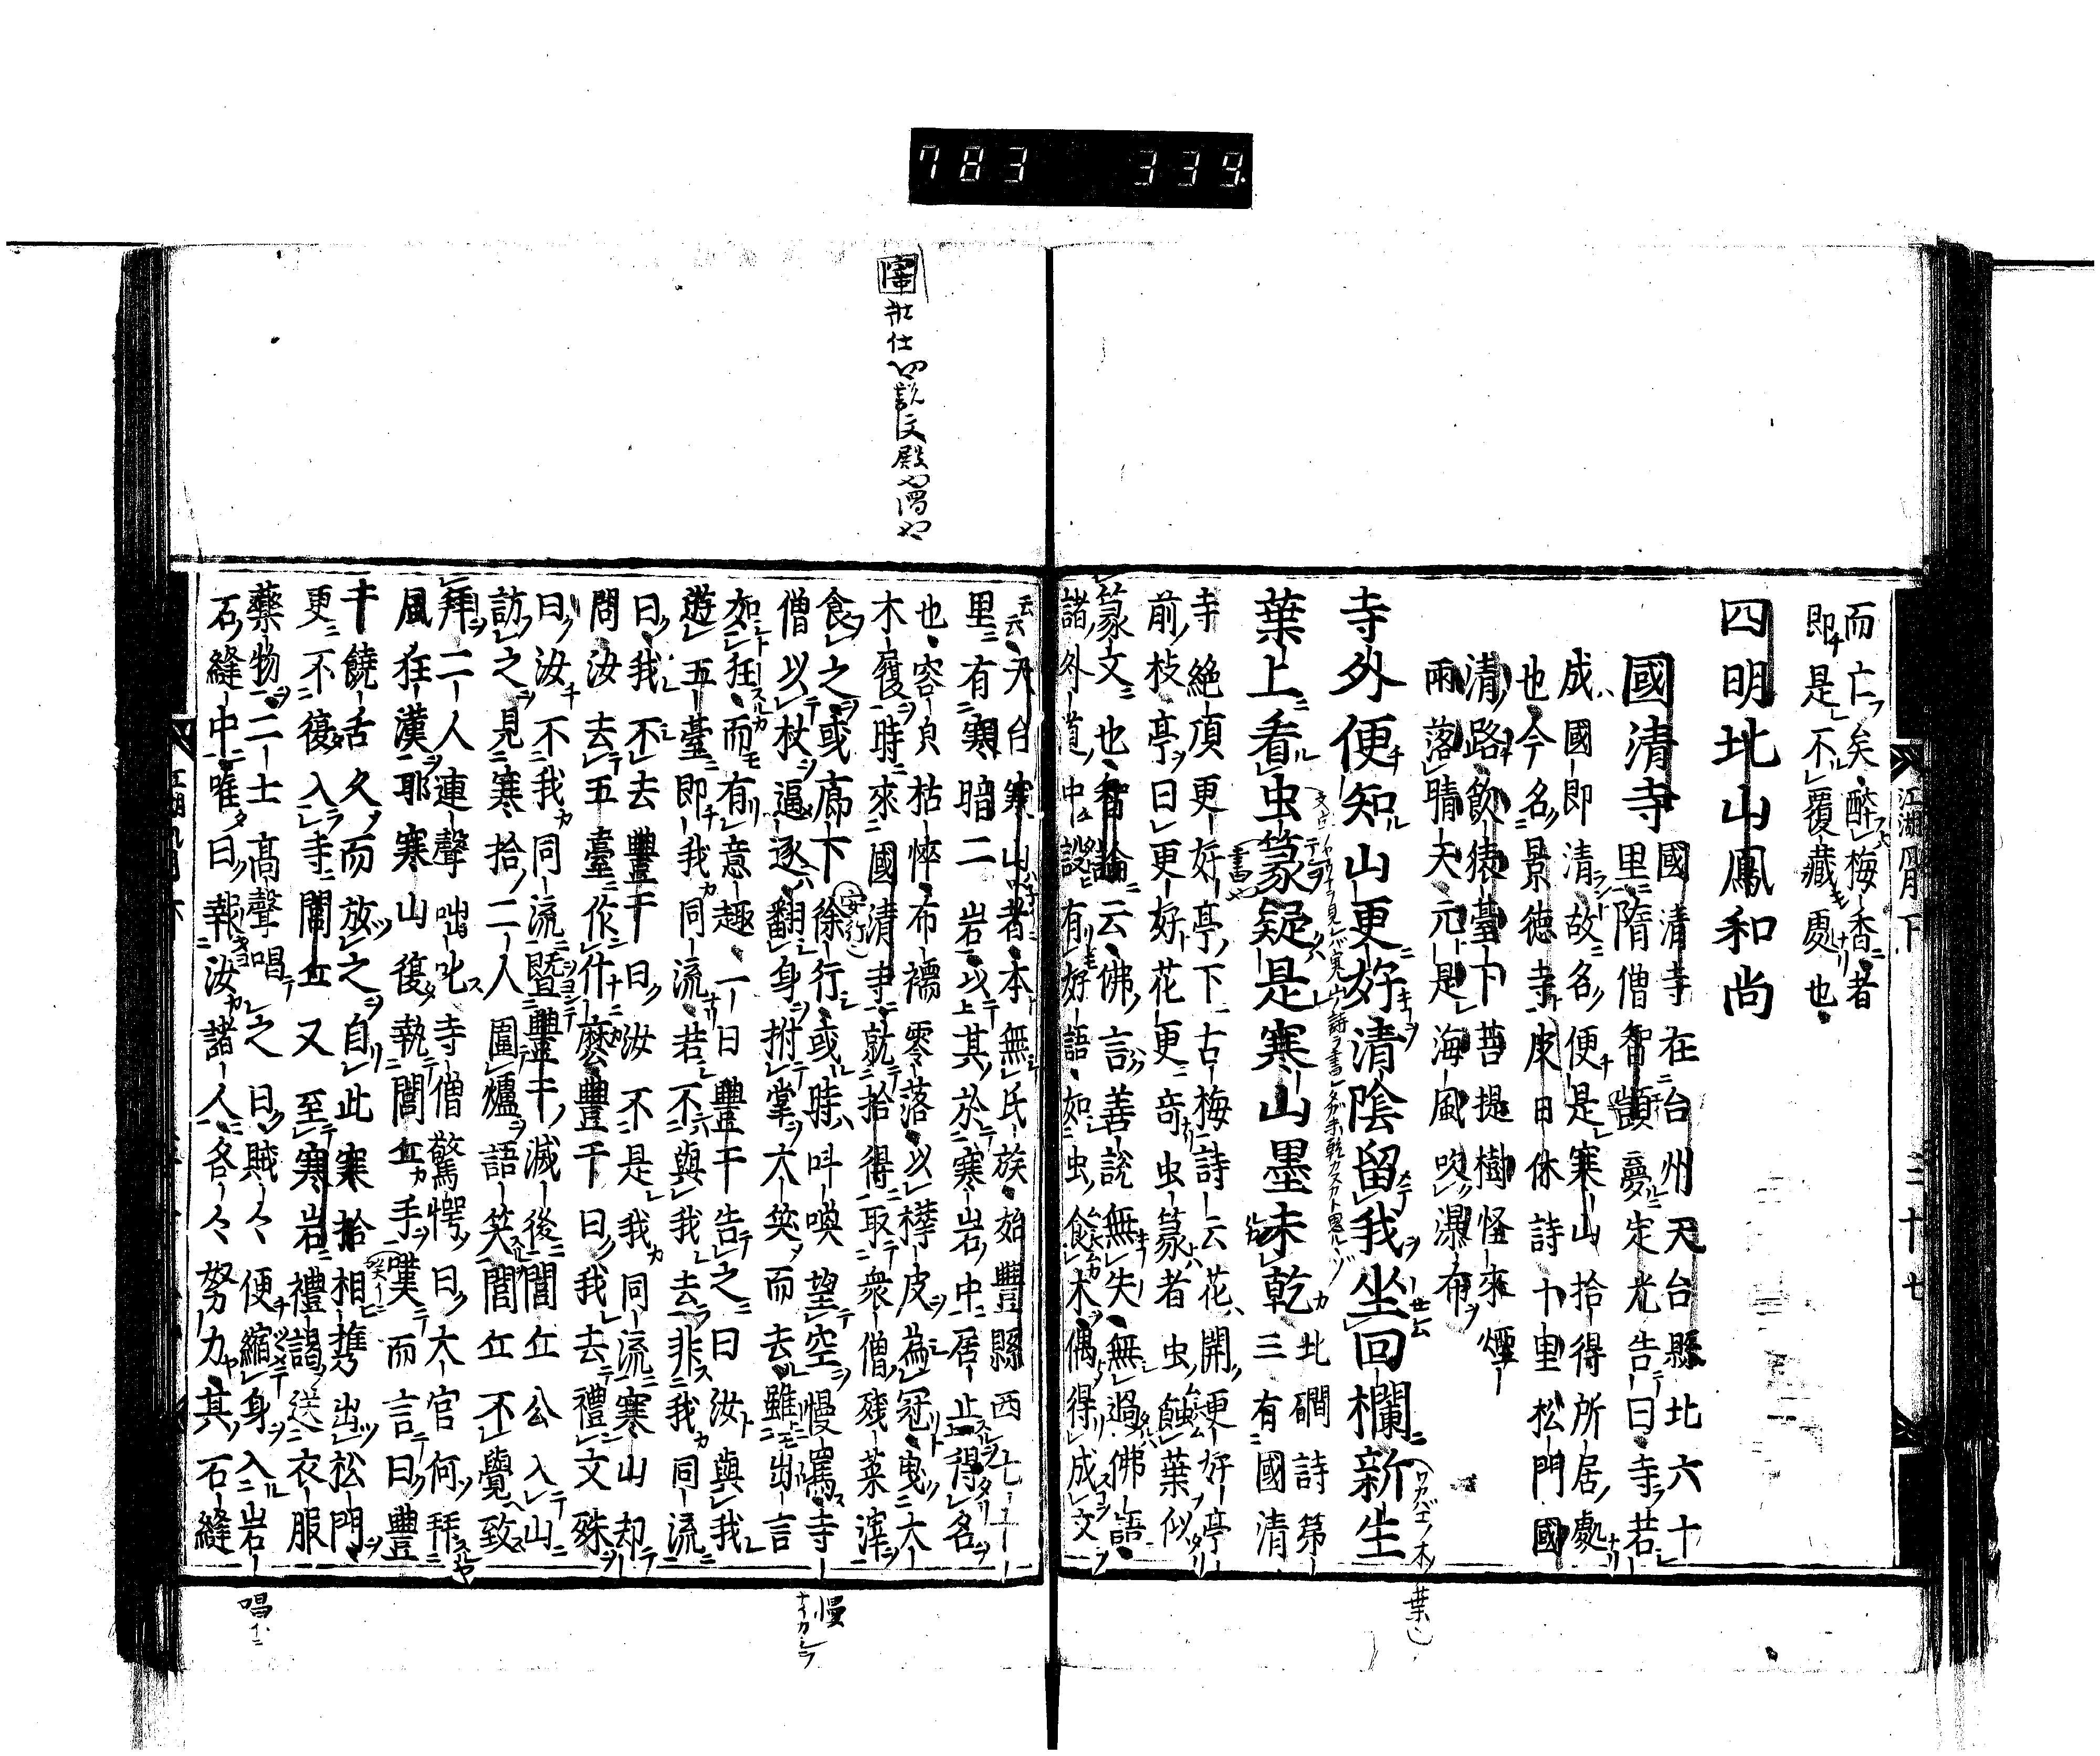 783 339
而亡矣、酔梅香者
即是不覆藏處也、
四明北山鳳和尚
國清寺 國清寺在台州天台縣北六十
里隋僧智顗夢定光告曰寺若
成國即清故名便是寒山拾得所居處
也今名景徳寺皮日休詩十里松門國
清路飯猿臺下菩提樹怪來煙
雨落晴天元是海風吹瀑布
寺外便知山更好清陰留我坐回欄新生
葉上看虫篆疑是寒山墨未乾 北磵詩第
三有國清
寺絶頂更好亭下古梅詩云花開更好亭
前枝亭曰更好花更奇虫篆者虫蝕葉似
篆文也智論云佛言善說無失無過佛語
諸外道中設有好語如虫食木偶得成文
云云天台寒山者本無氏族始豐縣西七十
里有寒暗二岩以其於寒岩中居止得名
也容皃枯悴布襦零落以樺皮為冠曳大
木履時來國清寺就拾得取衆僧殘菜滓
食之或廊下徐行或時叫喚望空慢罵寺
僧以杖逼逐翻身拊掌大笑而去雖出言
如狂而有意趣一日豐干告之曰汝與我
遊五臺即我同流若不與我去非我同流
曰我不去豐干曰汝不是我同流寒山却
問汝去五臺作什麼豐干曰我去禮文殊
曰汝不我同流暨豐干滅後閭丘公入山
訪之見寒拾二人圍爐語笑閭丘不覺致
拜二人連聲咄叱寺僧驚愕曰大官何拜
風狂漢耶寒山復執閭丘手嘆而言曰豐
干饒舌久而放之自此寒拾相携出松門
更不復入寺閭丘又至寒岩禮謁送衣服
藥物二士高聲唱之曰賊々便縮身入岩
石縫中唯曰報汝諸人各々努力其石縫